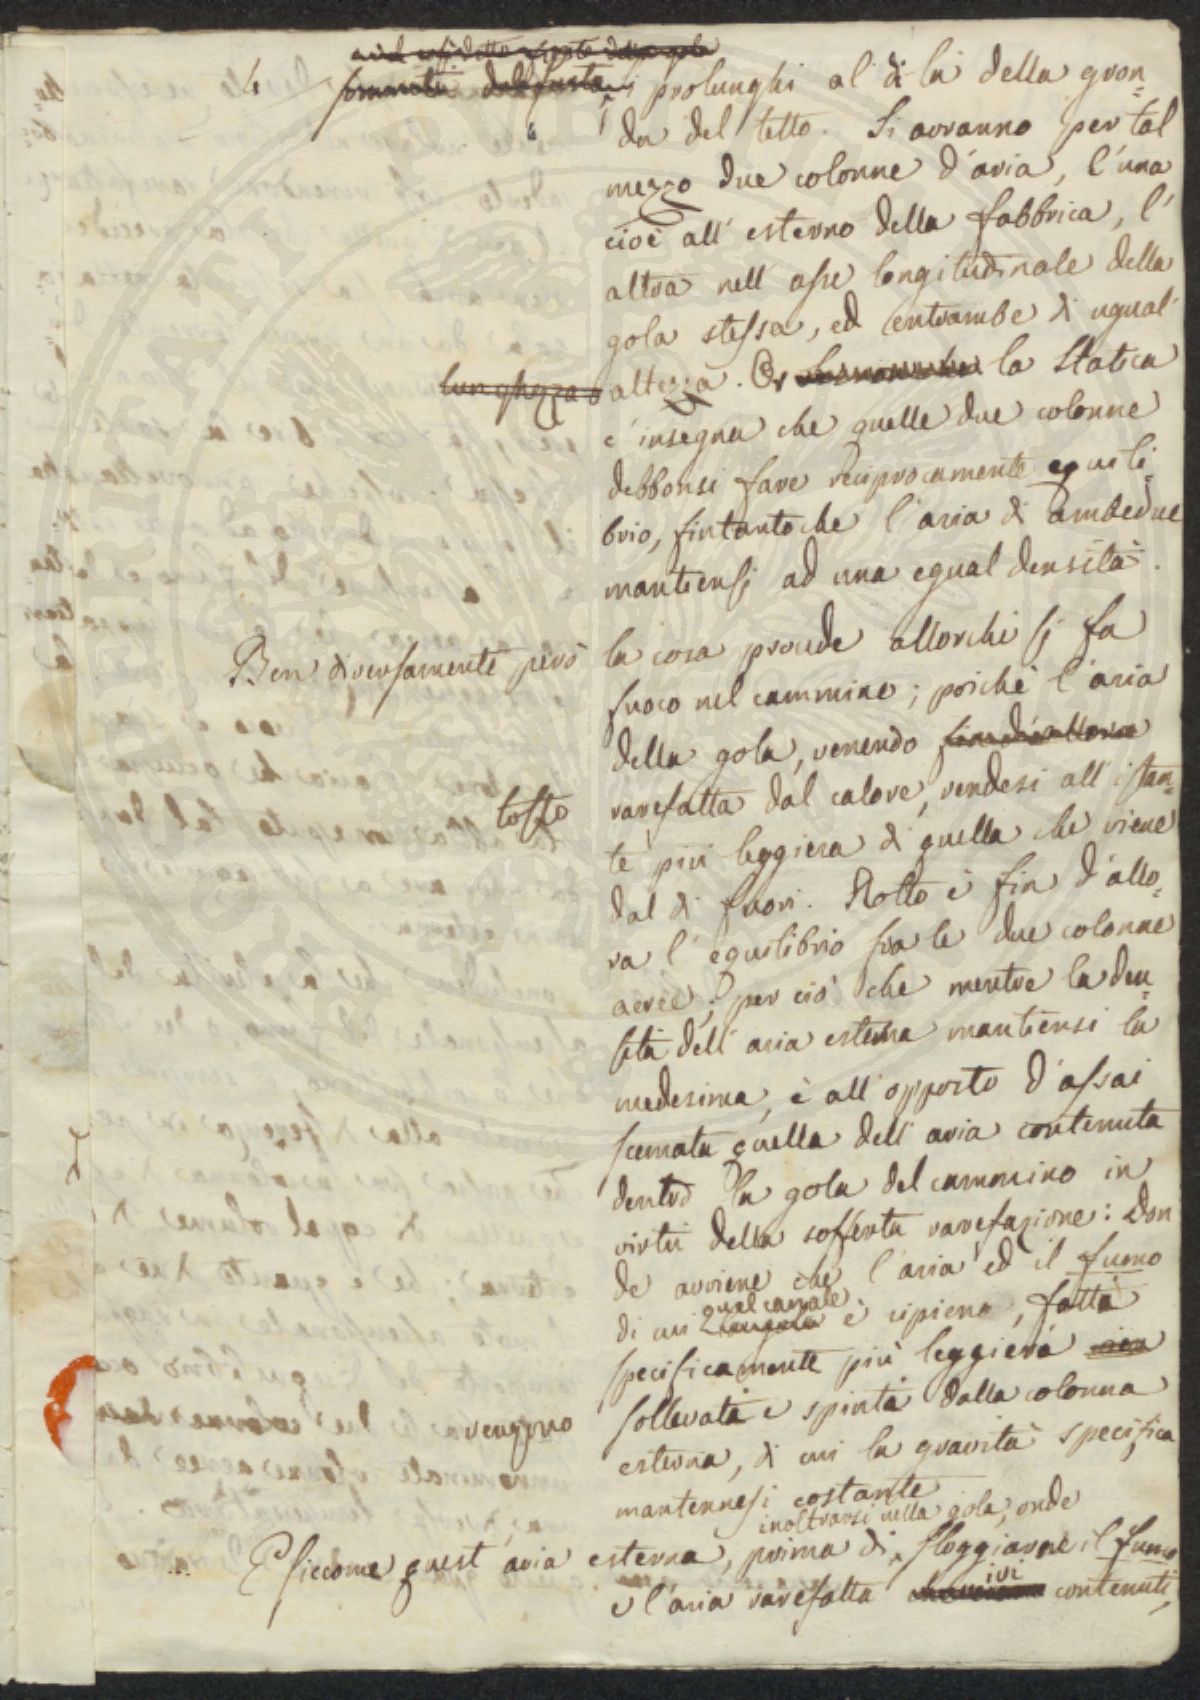 4
si prolunghi al di là della gron=
da del tetto. Si avranno per tal
mezzo due colonne d'aria, l'una
cioè all'esterno della fabbrica, l'
altra nell'asse longitudinale della
gola stessa, ed entrambe di ugual
lunghezza o altezza. Or la Statica
c'insegna che quelle due colonne
debbonsi fare reciprocamente equili=
brio, fintantoche l'aria di ambedue
mantiensi ad una egual densità.
Ben diversamente però la cosa procede allorchè si fa
fuoco nel cammino; poichè l'aria
della gola, venendo fin d'allora
tosto rarefatta dal calore, rendesi all'istan=
te più leggiera di quella che viene
dal di fuori. Rotto è fin d'allo=
ra l'equilibrio fra le due colonne
aeree; per ciò che mentre la den=
sità dell'aria esterna mantiensi la
medesima, è all'opposto d'assai
scemata quella dell'aria contenuta
dentro la gola del cammino in
virtù della sofferta rarefazione: Don
de avviene che l'aria ed il fumo
qual canale
di cui è ripieno, fatta
specificamente più leggiera
vengono sollevata e spinta dalla colonna
esterna, di cui la gravità specifica
mantennesi costante
inoltrarsi nella gola, onde
E siccome quest'aria esterna, prima di sloggiarne il fumo
ivi
e l'aria rarefatta contenuti,